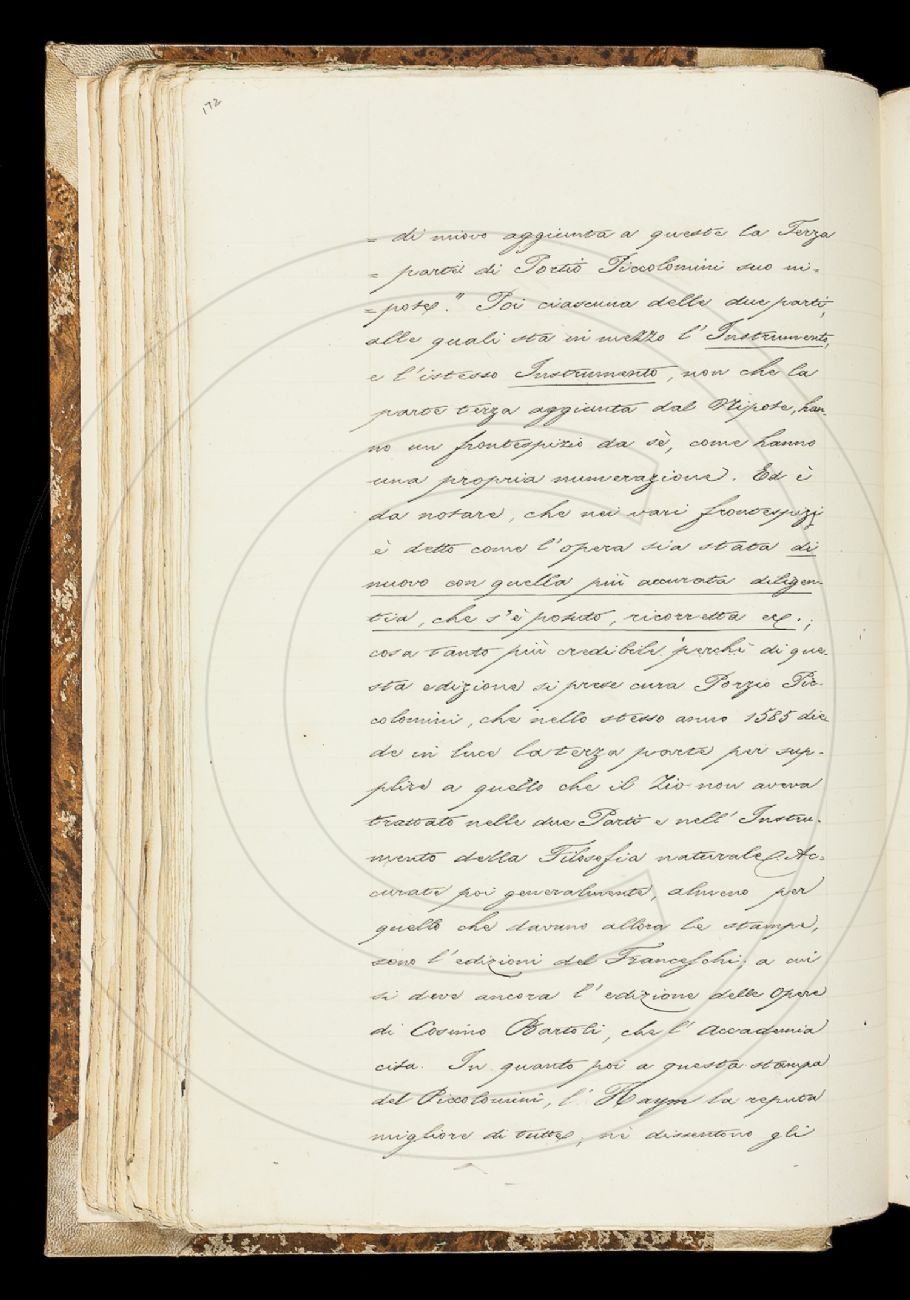 172
= di nuovo aggiunta a queste la Terza
= parte di Portio Piccolomini suo ni=
= pote." Poi ciascuna delle due parti,
alle quali sta in mezzo l'Instrumento,
e l'istesso Instrumento, non che la
parte terza aggiunta dal Nipote, han-
no un frontespizio da sè, come hanno
una propria numerazione. Ed è
da notare, che nei vari frontespizj
è detto come l'opera sia stata di
nuovo con quella più accurata diligen-
tia, che s'è potuto, ricorretta ec.;
cosa tanto più credibile perchè di que-
sta edizione si prese cura Porzio Pic-
colomini, che nello stesso anno 1585 die-
de in luce la terza parte per sup-
plire a quello che il Zio non aveva
trattato nelle due Parti e nell'Instru-
mento della Filosofia naturale. Ac-
curate poi generalmente, almeno per
quello che davano allora le stampe,
sono l'edizioni del Franceschi; a cui
si deve ancora l'edizione delle Opere
di Cosimo Bartoli, che l'Accademia
cita. In quanto poi a questa stampa
del Piccolomini, l'Haym la reputa
migliore di tutte, nè dissentono gli